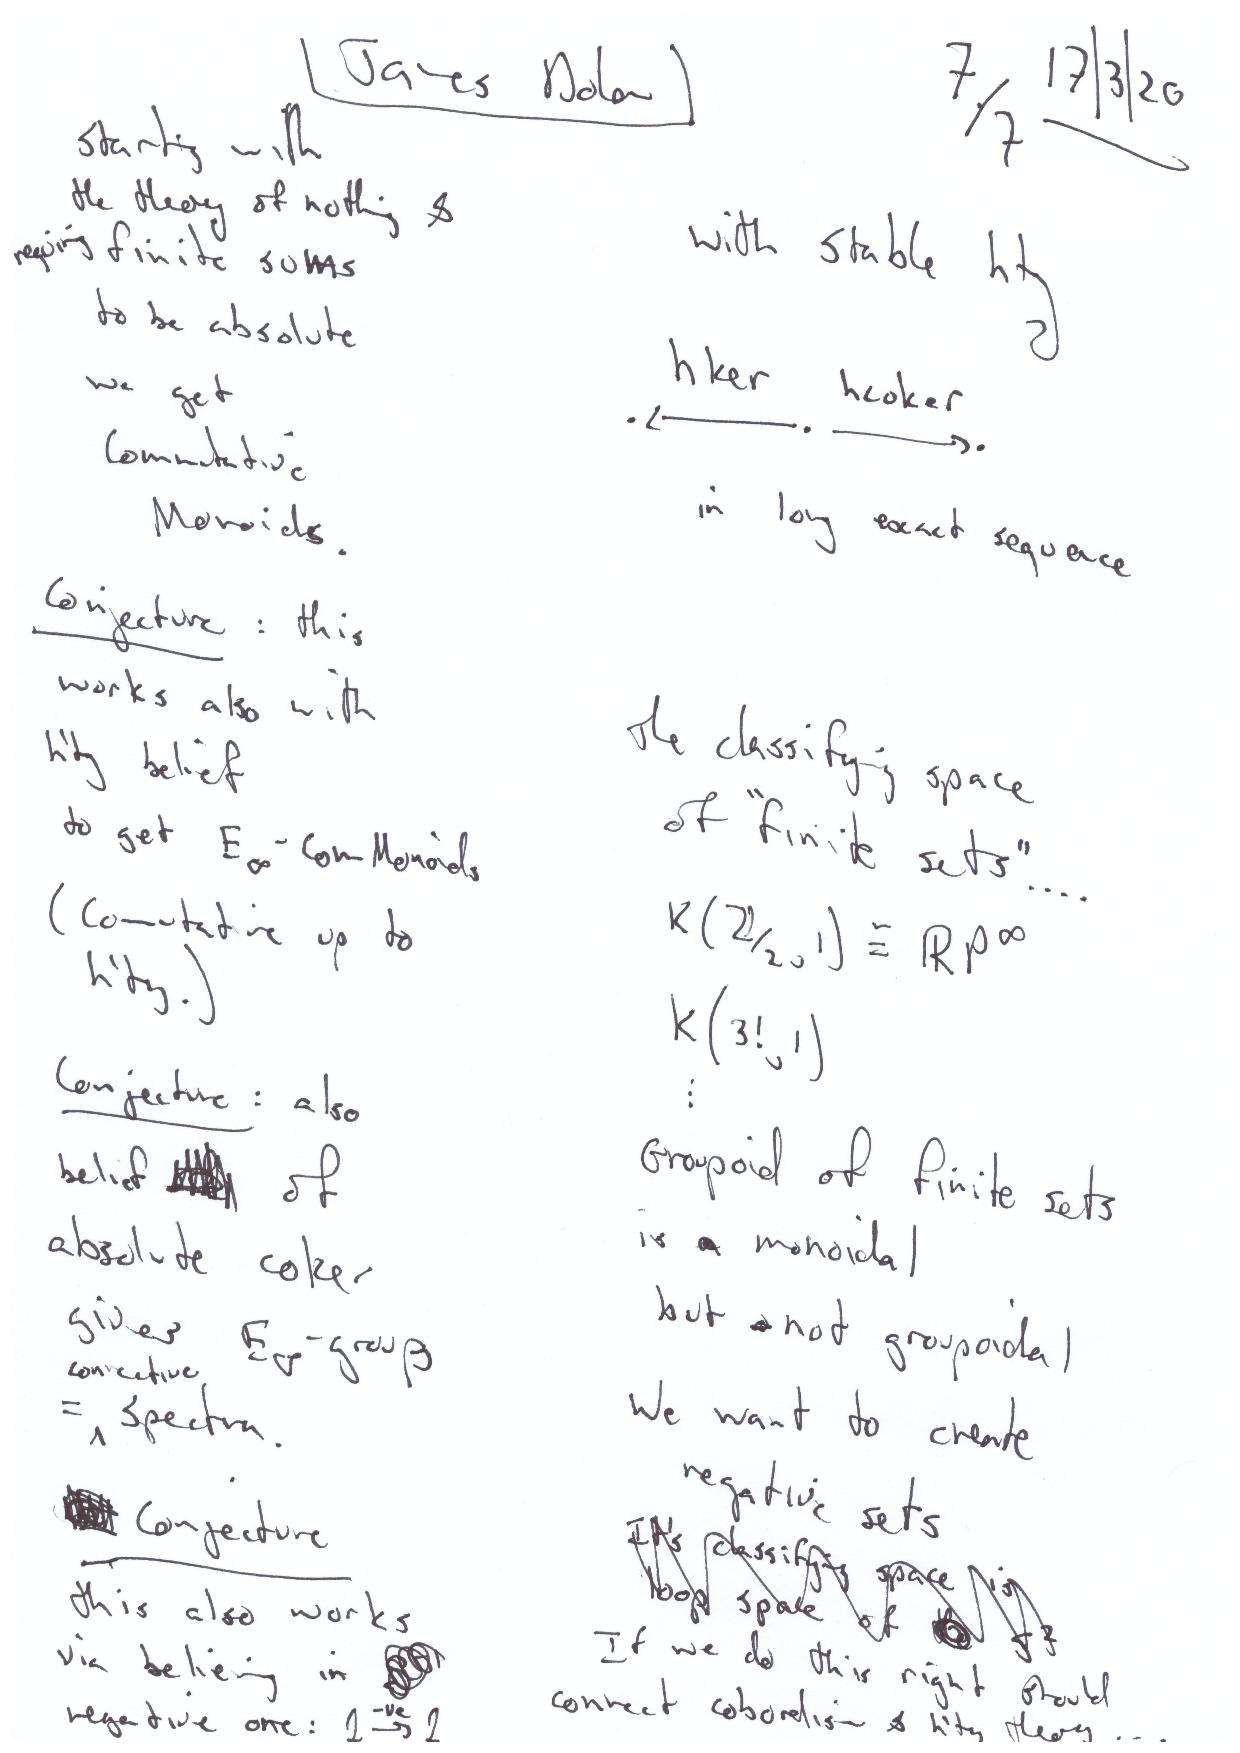 James Dolan
7/7 17/3/20
starting with
the theory of nothing &
requiring finite sums
to be absolute
we get
Commutative
Monoids.
Conjecture : this
works also with
h'ty belief
to get E∞-Com Monoids
(Commutative up to
h'ty.)
Conjecture : also
belief of
absolute coker
gives E∞-groups
connective
= ^ Spectra.
Conjecture
this also works
via believing in
negative one: 1 -ve→ 1
with stable hty
hker hcoker
. ← . → .
in long exact sequence
the classifying space
of "finite sets"....
K(ℤ/2, 1) ≅ RP∞
K(3!, 1)
⋮
Groupoid of finite sets
is a monoidal
but not groupoidal
We want to create
negative sets
It's classifying space is
loop space of
If we do this right should
connect cobordism & h'ty theory....